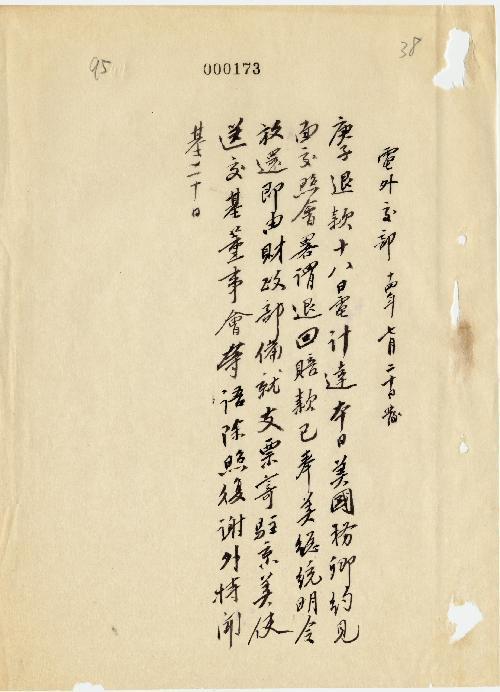 95
000173
38
電外交部 十四年七月二十日發
庚子退款十八日電計達本日美國務卿約見
面交照會畧謂退回賠款已奉美總統明令
放還即由財政部備就支票寄駐京美使
送交基董事會等語除照復謝外特聞
基二十日